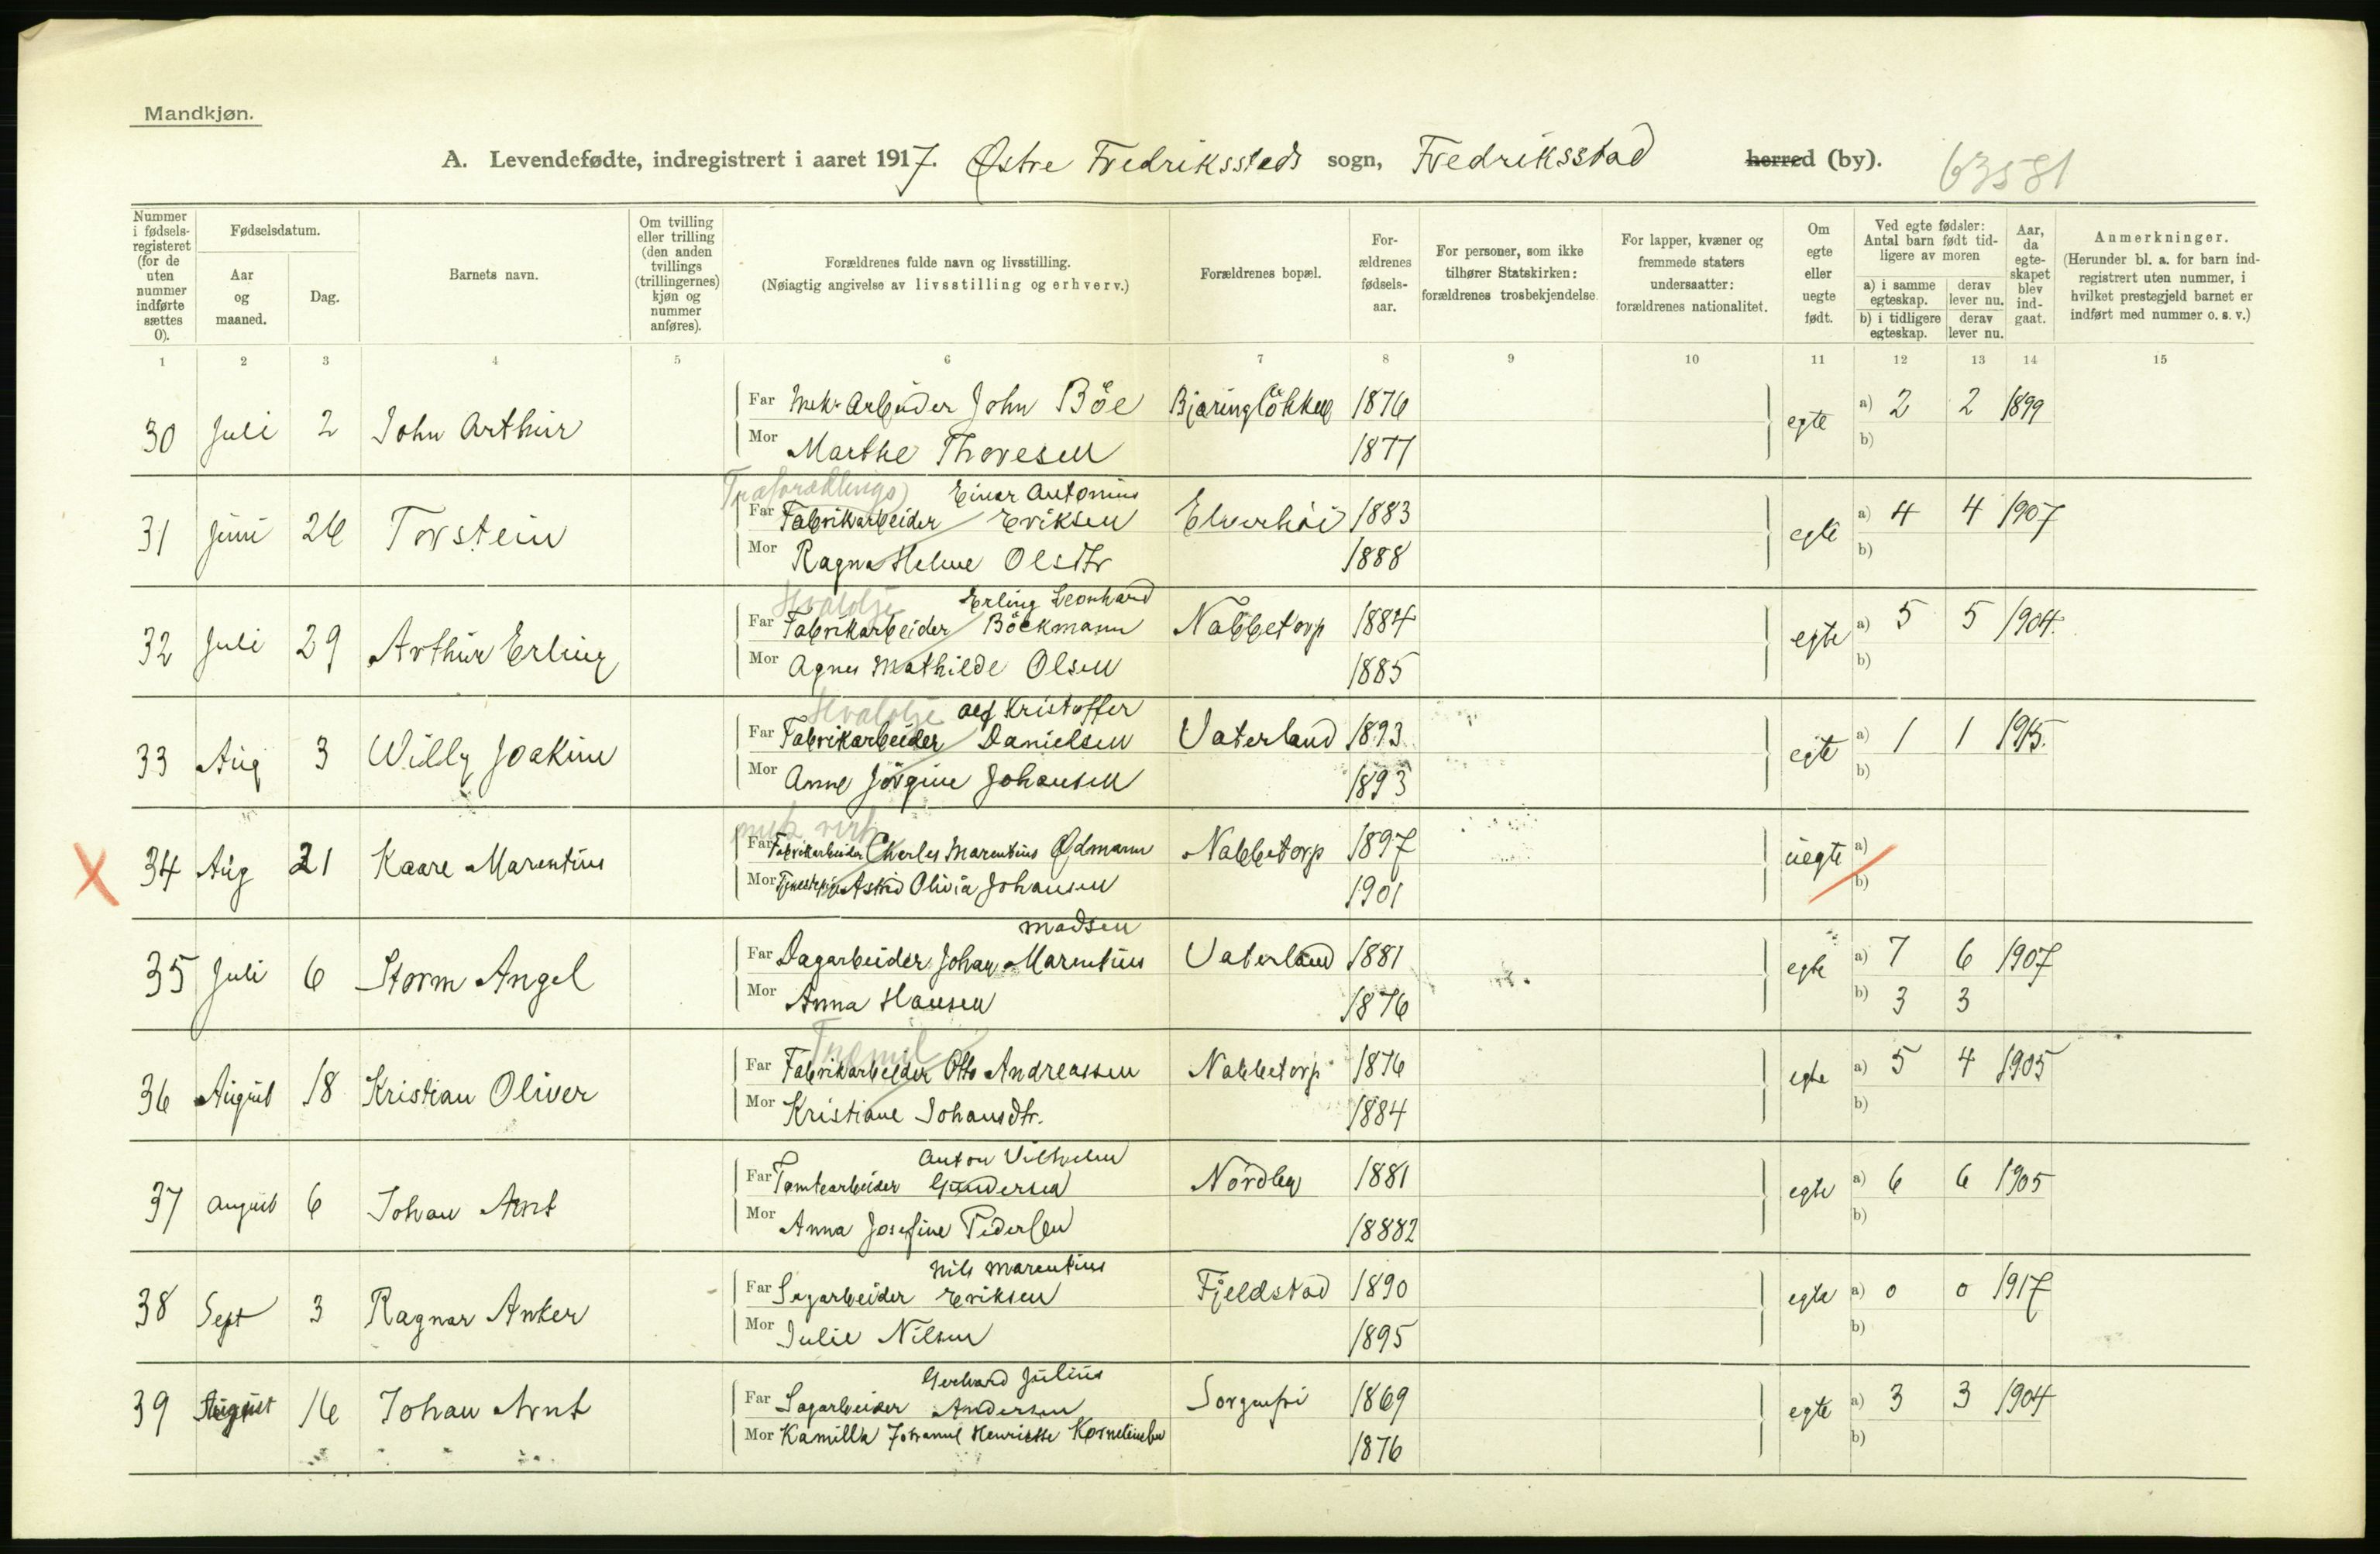 Mandkjøn.
A. Levendefødte, indregistrert i aaret 1917. Østre Fredriksstads sogn, Fredriksstad herred (by). 63581
Nummer i fødsels-registeret (for de uten nummer indførte sættes 0).
Fødselsdatum.
Aar og maaned.
Dag.
Barnets navn.
Om tvilling eller trilling (den anden tvillings (trillingernes) kjøn og nummer anføres).
Forældrenes fulde navn og livsstilling.
(Nøiagtig angivelse av livsstilling og erhverv.)
Forældrenes bopæl.
For-ældrenes fødsels-aar.
For personer, som ikke tilhører Statskirken: forældrenes trosbekjendelse.
For lapper, kvæner og fremmede staters undersaatter: forældrenes nationalitet.
Om egte eller uegte født.
Ved egte fødsler: Antal barn født tid-ligere av moren
a) i samme egteskap. derav lever nu.
b) i tidligere egteskap. derav lever nu.
Aar, da egte-skapet blev ind-gaat.
Anmerkninger.
(Herunder bl. a. for barn ind-registrert uten nummer, i hvilket prestegjeld barnet er indført med nummer o. s. v.)
1 2 3 4 5 6 7 8 9 10 11 12 13 14 15
Far Mek. Arbeider John Böe Bjøringløkken 1876 a) 2 2 1899
30 Juli 2 John Arthur egte
Mor Marthe Thoresen 1877 b)
Træforædlings Einar Antonius
Far Fabrikarbeider Eriksen Elverhöi 1883 a) 4 4 1907
31 Juni 26 Torstein egte
Mor Ragna Helene Olsdtr 1888 b)
Hvalolje Erling Leonhard
Far Fabrikarbeider Böckmann Nabbetorp 1884 a) 5 5 1904.
32 Juli 29 Arthur Erling egte
Mor Agnes Mathilde Olsen 1885 b)
Hvalolje Alf Kristoffer
Far Fabrikarbeider Danielsen Vaterland 1893 a) 1 1 1915.
33 Aug 3 Willy Joakim egte
Mor Anne Jörgine Johansen 1893 b)
mek verk
Far Fabrikarbeider Charles Marentius Ødmann Nabbetorp 1897 a)
X 34 Aug 21 Kaare Marentius uegte
Mor Tjenestepige Astrid Olivia Johansen 1901 b)
Madsen
Far Dagarbeider Johan Marentius Vaterland 1881 a) 7 6 1907
35 Juli 6 Storm Angel egte
Mor Anna Hansen 1876 b) 3 3
Far Fabrikarbeider Otto Andreassen Nabbetorp 1876 a) 5 4 1905
36 August 18 Kristian Oliver egte
Mor Kristiane Johansdtr. 1884 b)
Anton Vilhelm
Far Tomtearbeider Gundersen Nordby 1881 a) 6 6 1905
37 August 6 Johan Arnt egte
Mor Anna Josefine Pedersen 18882 b)
Nils Marentius
Far Sagarbeider Eriksen Fjeldstad 1890 a) 0 0 1917
38 Sept 3 Ragnar Anker egte
Mor Julie Nilsen 1895 b)
Gerhard Julius
Far Sagarbeider Andersen Sorgenfri 1869 a) 3 3 1904
39 August 16 Johan Arnt egte
Mor Kamilla Johanne Henriette Korneliussen 1876 b)